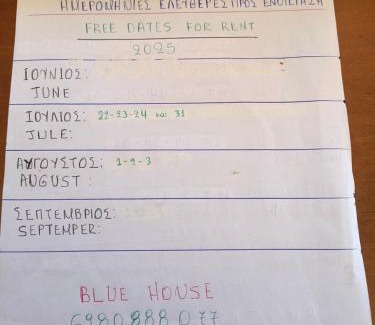 ΗΜΕΡΟΜΗΝΙΕΣ ΕΛΕΥΘΕΡΕΣ ΠΡΟΣ ΕΝΟΙΚΙΑΣΗ
FREE DATES FOR RENT
2025
ΙΟΥΝΙΟΣ:
JUNE
ΙΟΥΛΙΟΣ: 22-23-24 και 31
JULE:
ΑΥΓΟΥΣΤΟΣ: 1-2-3
AUGUST :
ΣΕΠΤΕΜΒΡΙΟΣ:
SEPTEMPER:
BLUE HOUSE
6980888077